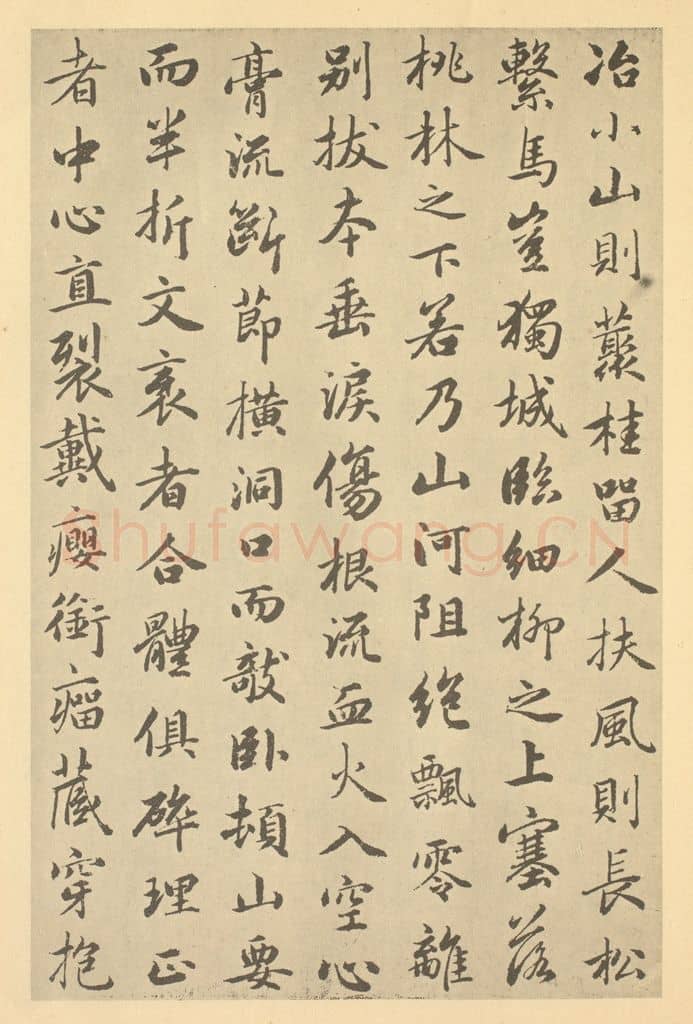 冶小山則藂桂留人扶風則長松
繫馬豈獨城臨細柳之上塞落
桃林之下若乃山河阻絕飄零離
別拔本垂淚傷根流血火入空心
膏流斷節橫洞口而敧臥頓山要
而半折文衺者合體俱碎理正
者中心直裂戴癭銜瘤藏穿抱
Shufawang.CN